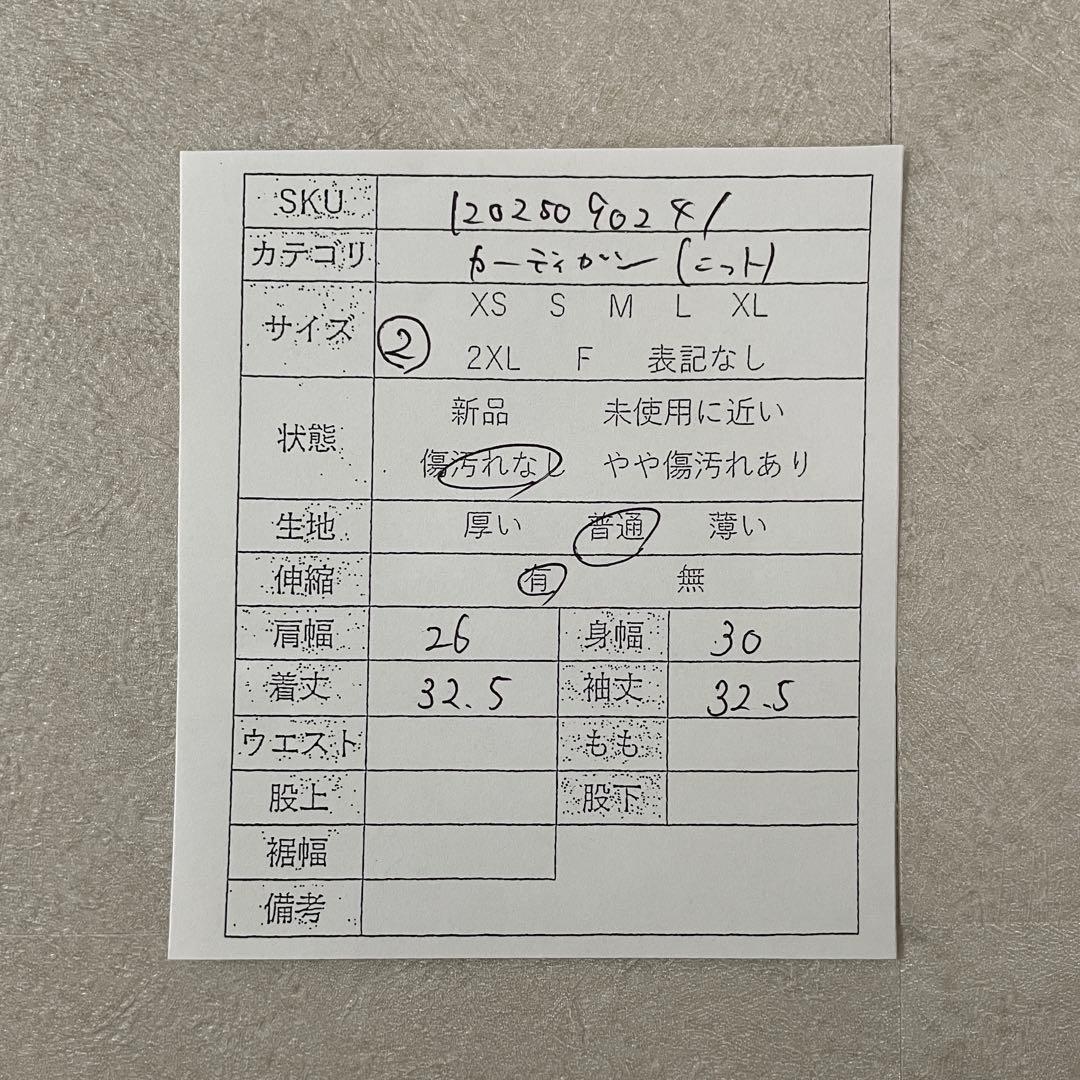 SKU 1202509024/
カテゴリ カーディガン (ニット)
サイズ XS S M L XL
② 2XL F 表記なし
状態 新品 未使用に近い
傷汚れなし やや傷汚れあり
生地 厚い 普通 薄い
伸縮 有 無
肩幅 26 身幅 30
着丈 32.5 袖丈 32.5
ウエスト もも
股上 股下
裾幅
備考